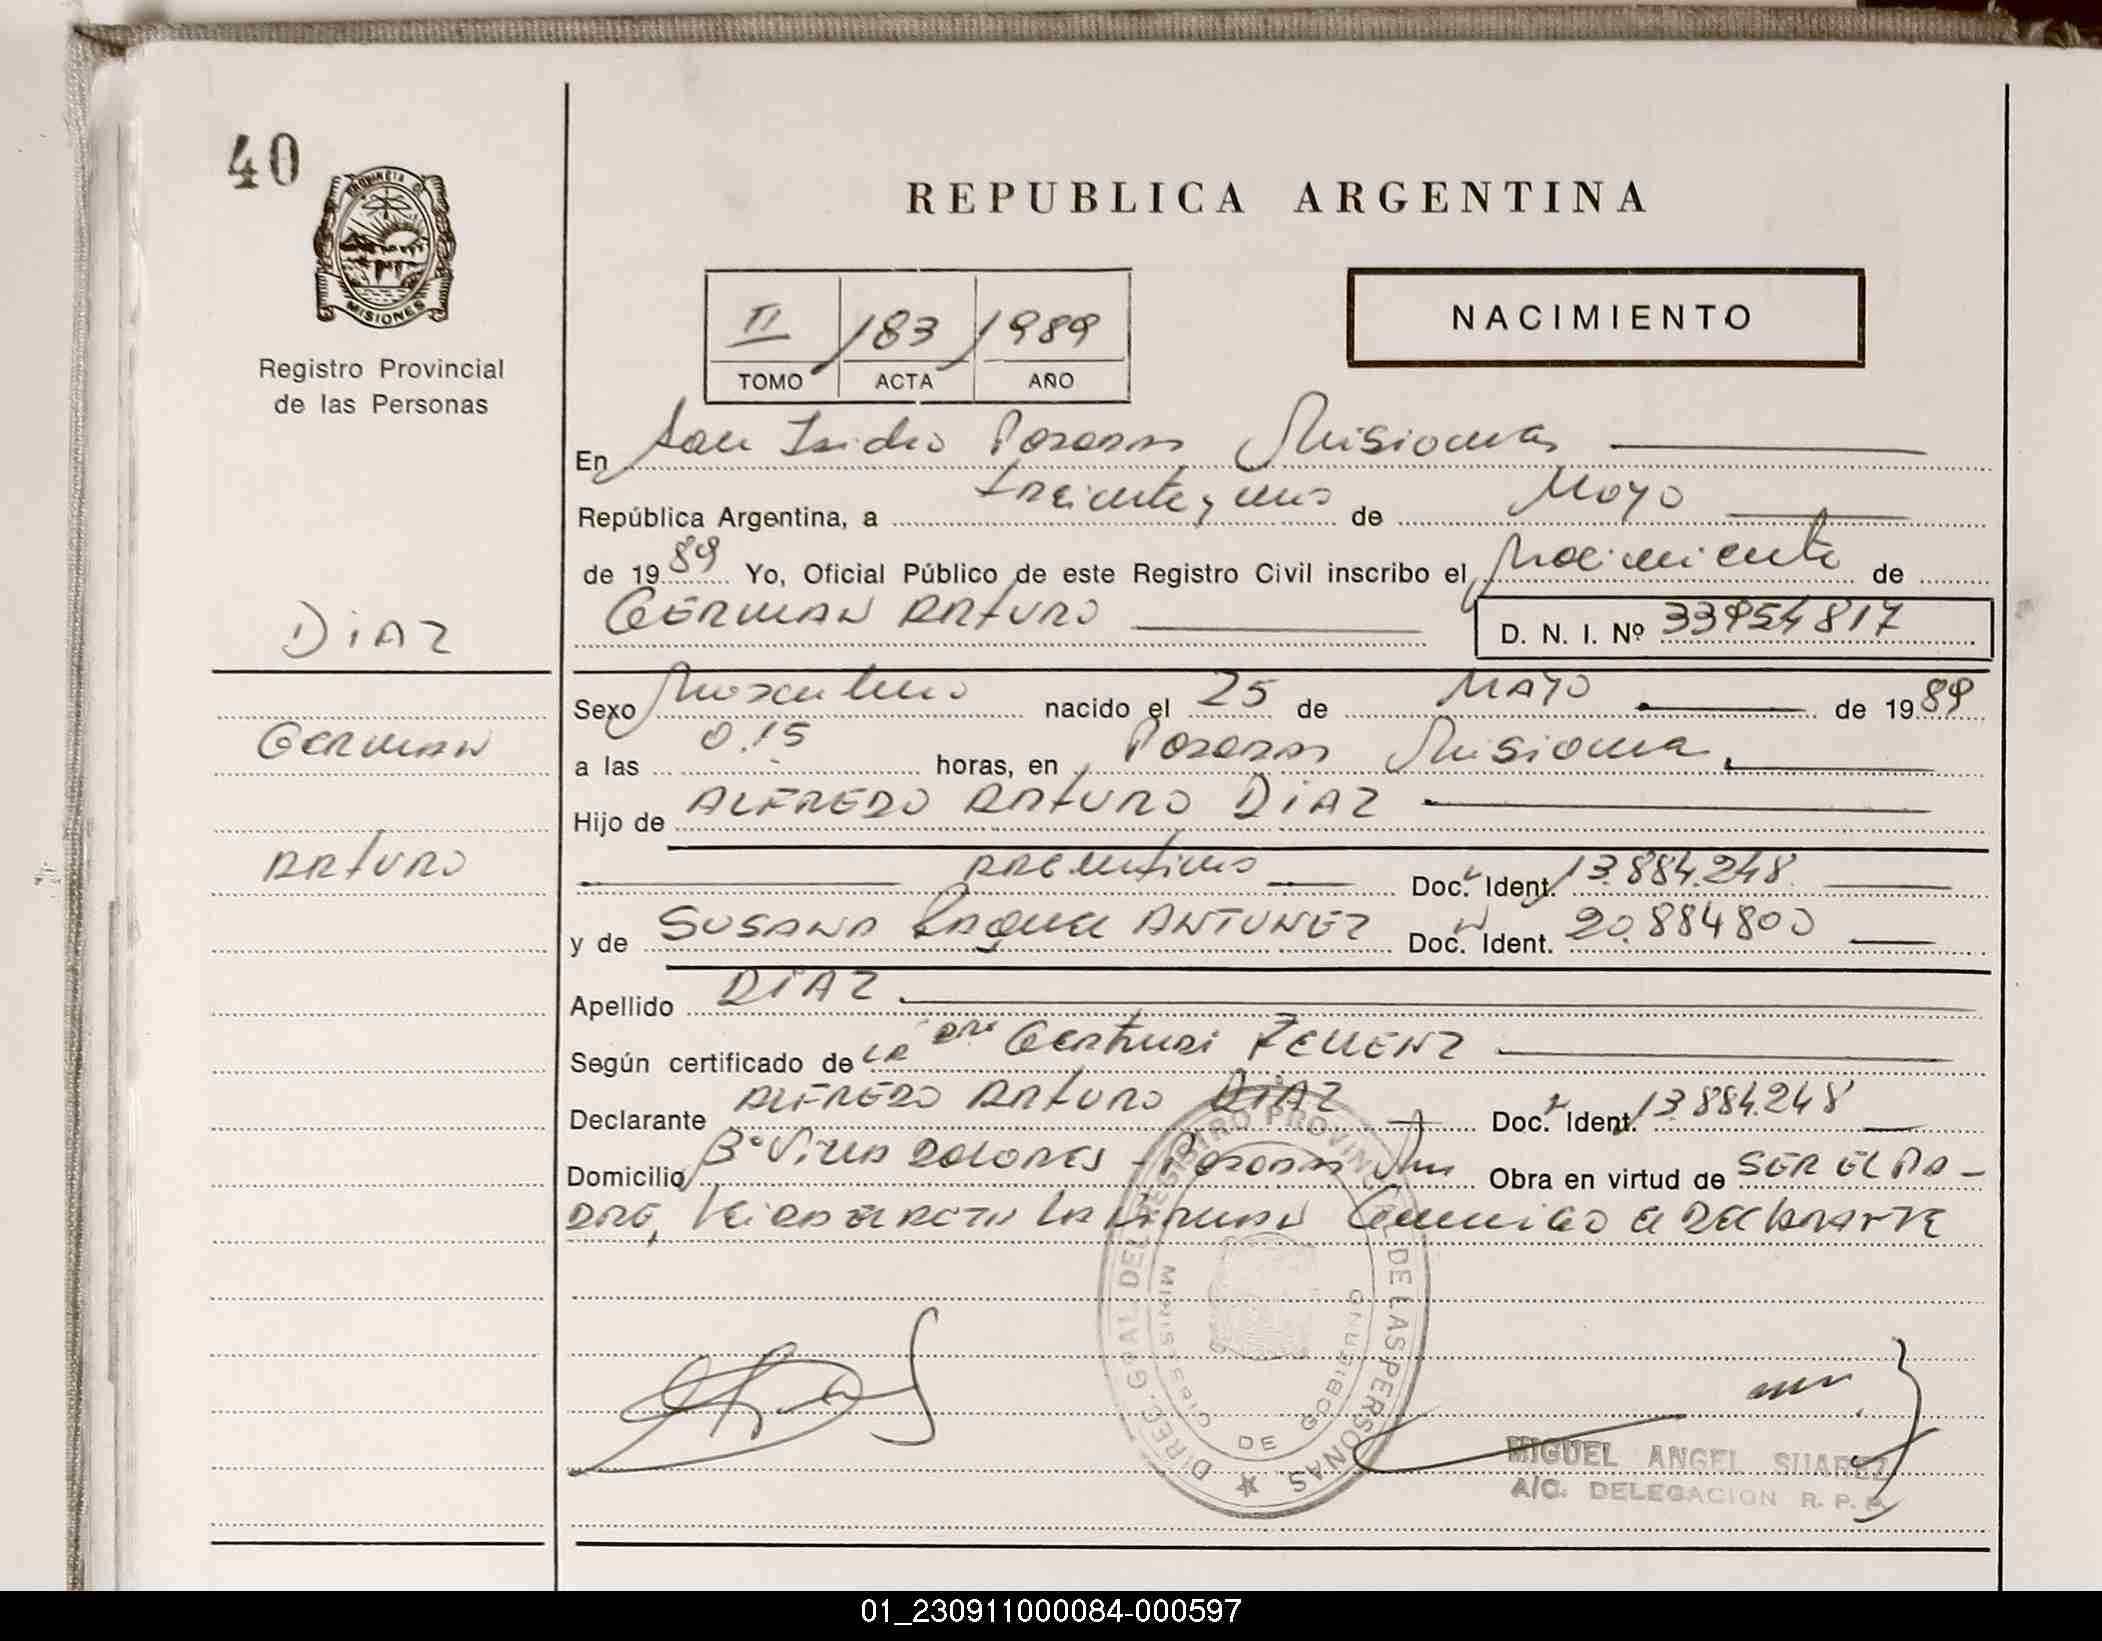 40
PROVINCIA DE
MISIONES
Registro Provincial
de las Personas
REPUBLICA ARGENTINA
II / 83 / 1989
TOMO ACTA AÑO
NACIMIENTO
En San Isidro Posadas Misiones
República Argentina, a treinta y uno de Mayo
de 1989 Yo, Oficial Público de este Registro Civil inscribo el nacimiento de
GERMAN ARTURO D. N. I. Nº 33954817
DIAZ
Sexo Masculino nacido el 25 de MAYO de 1989
GERMAN
a las 0.15 horas, en Posadas Misiones
Hijo de ALFREDO ARTURO DIAZ
ARTURO
ARGENTINO Doc. Ident. 13.884.248
y de SUSANA RAQUEL ANTUNEZ Doc. Ident. 20.884800
Apellido DIAZ
Según certificado de LA DRA GERTRUDI ZELLENZ
Declarante ALFREDO ARTURO DIAZ Doc. Ident. 13.884.248
Domicilio Bº VILLA DOLORES - Posadas Mnes Obra en virtud de SER EL PA-
DRE, LEIDA EL ACTA LA FIRMAN CONMIGO EL DECLARANTE
DIREC. GRAL. DEL REGISTRO PROVINCIAL DE LAS PERSONAS
MINISTERIO DE GOBIERNO
MIGUEL ANGEL SUAREZ
A/C. DELEGACION R. P. P.
01_230911000084-000597